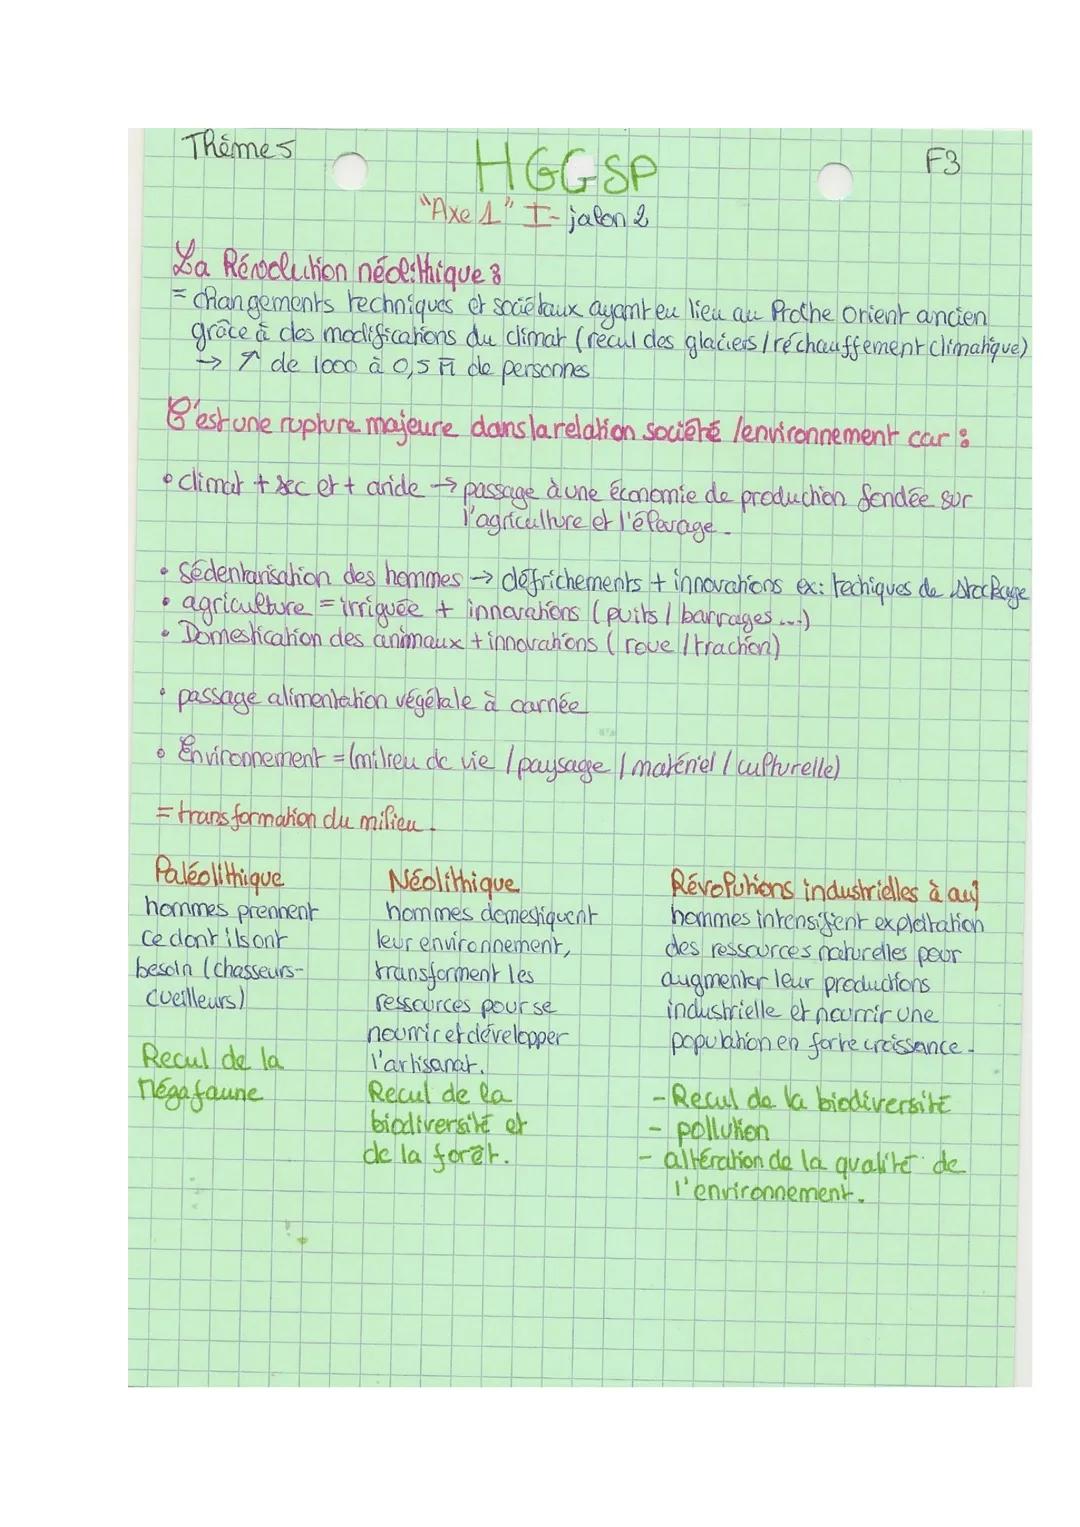 Thème 5
HGGSP
F3
"Axe 1" I- jalon 2
La Révolution néolithique :
= changements techniques et sociétaux ayant eu lieu au Proche Orient ancien
grâce à des modifications du climat (recul des glaciers / réchauffement climatique)
→ ↑ de 1000 à 0,5 M de personnes
C'est une rupture majeure dans la relation société / environnement car :
• climat + sec et + aride → passage à une économie de production fondée sur
l'agriculture et l'élevage.
• sédentarisation des hommes → défrichements + innovations ex: techiques de stockage
• agriculture = irriguée + innovations (puits / barrages ...)
• Domestication des animaux + innovations ( roue / traction)
• passage alimentation végétale à carnée
• Environnement = (milieu de vie / paysage / matériel / culturelle)
= transformation du milieu.
Paléolithique
hommes prennent
ce dont ils ont
besoin (chasseurs-
cueilleurs)
Recul de la
mégafaune
Néolithique
hommes domestiquent
leur environnement,
transforment les
ressources pour se
nourrir et développer
l'artisanat.
Recul de la
biodiversité et
de la forêt.
Révolutions industrielles à auj
hommes intensifient exploitation
des ressources naturelles pour
augmenter leur productions
industrielle et nourrir une
population en forte croissance.
- Recul de la biodiversité
- pollution
- altération de la qualité de
l'environnement.